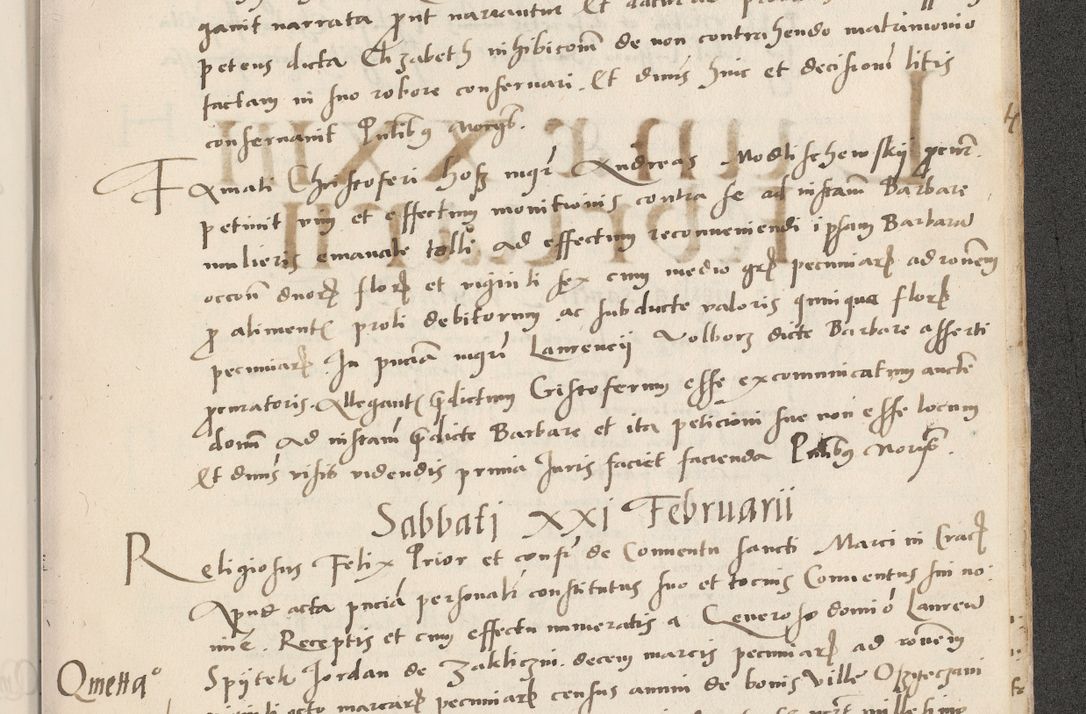 ganit narrata prout narrantur Et
petens dicta Elizabeth inhibicom de non contrahendo matrimonio
factam in suo robore conservari. Et dnus huic et decisioni litis
conservavit Pntibus Norgb.
Famati Christoferi hosz mgri Andreas Modlischewskij procur.
petivit vim et effectum monitionis contra se ad instam Barbare
mulieris emanate tolli ad effectum reconveniendi ipsam Barbara
occon duor flor et viginti sex cum medio gr pecuniar ad ronem
pro aliment proli debitorum ac subducte valoris quinque flor
pecuniar. In pncia mgri Laurencij Volborz dicte Barbare asserti
procuratoris. Allegant pdictum Cristoferum esse excommunicatum aucte
domi ad instam pdicte Barbare et ita peticioni sue non esse locum
Et dnus visis videndis primia Juris faciet facienda Pntibus Norisb.
Sabbati XXI Februarii
Religiosus Felix Prior et confr de Conventu sancti Marci in Crac
Apud acta pncia personali constitutus suo et tocius Conventus sui no
mie. Receptis et cum effectu numeratis a Generoso domio Lauren
Spijtek Jordan de Zakliczin. decem marcis pecuniar ad ronem
Qmetta
octo marcar pecuniar census annui de bonis Ville